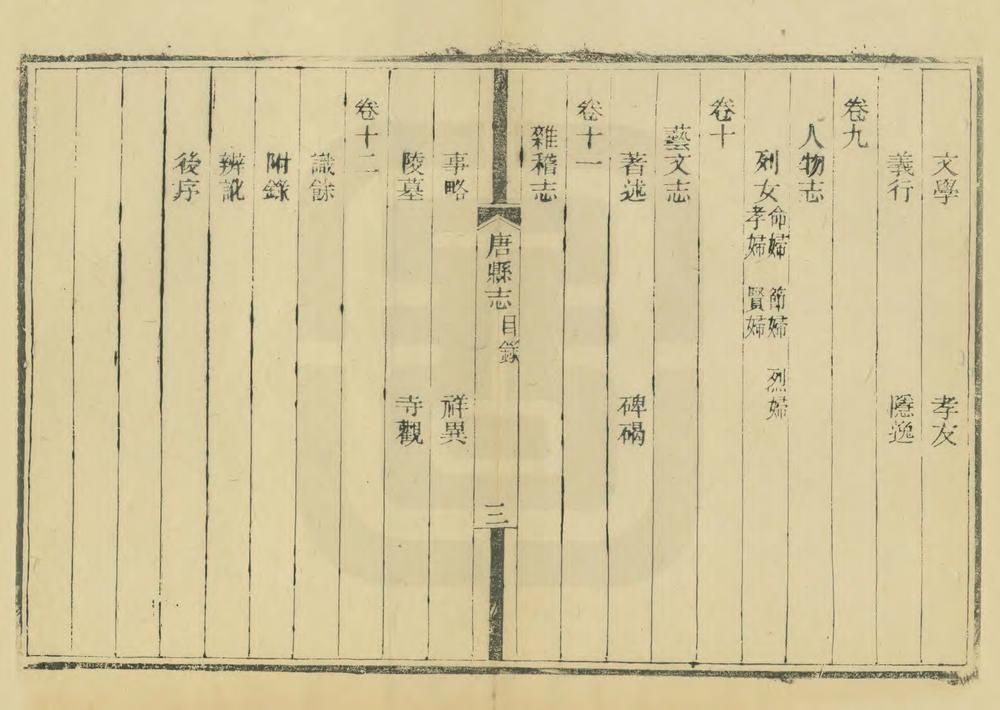 文學 孝友
義行 隱逸
卷九
人物志
列女 命婦 節婦 烈婦
孝婦 賢婦
卷十
藝文志
著述 碑碣
卷十一
雜稽志
唐縣志 目錄 三
事略 祥異
陵墓 寺觀
卷十二
識餘
附錄
辨訛
後序